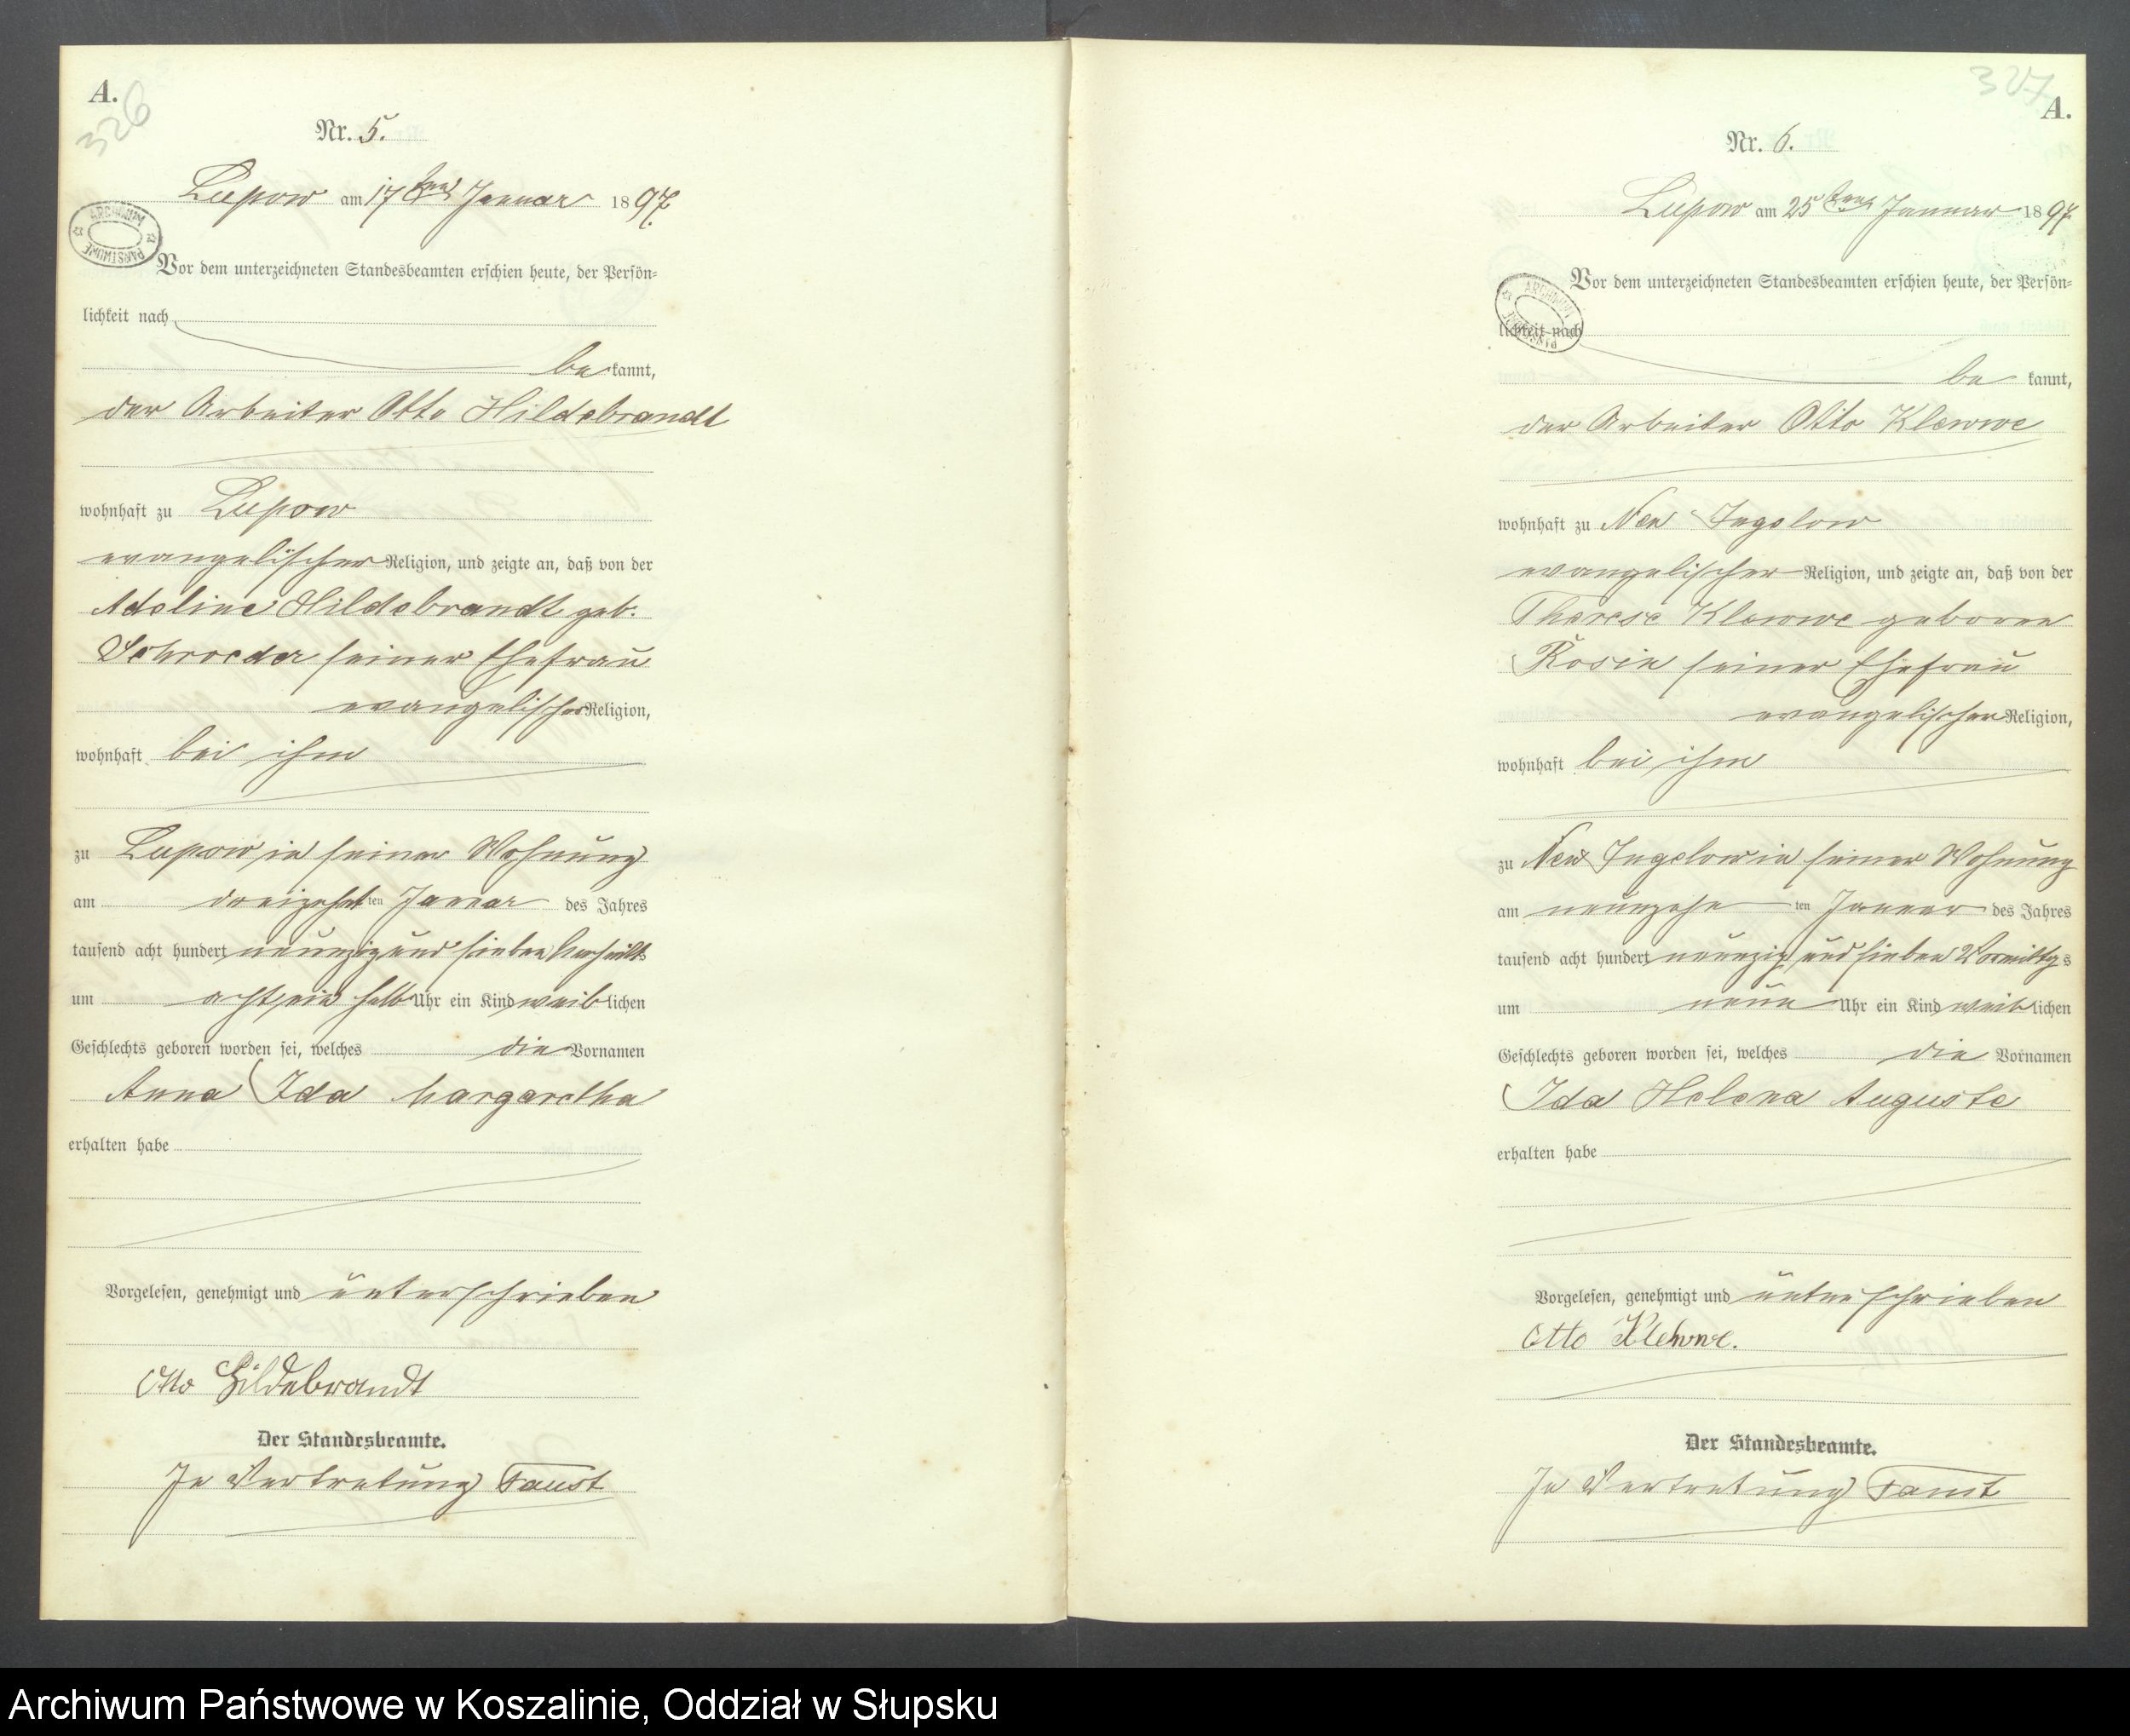 A.
326
Nr. 5.
Lupow am 17ten Januar 1897.
ARCHIWUM PAŃSTWOWE
Vor dem unterzeichneten Standesbeamten erschien heute, der Persön-
lichkeit nach
be kannt,
der Arbeiter Otto Hildebrandt
wohnhaft zu Lupow
evangelischer Religion, und zeigte an, daß von der
Adeline Hildebrandt geb.
Schroeder seiner Ehefrau
evangelischer Religion,
wohnhaft bei ihm
zu Lupow in seiner Wohnung
am dreizehnten Januar des Jahres
tausend acht hundert neunzig und sieben
um acht ein halb Uhr ein Kind weiblichen
Geschlechts geboren worden sei, welches die Vornamen
Anna Ida Margaretha
erhalten habe
Vorgelesen, genehmigt und unterschrieben
Otto Hildebrandt
Der Standesbeamte.
In Vertretung Faust
327
A.
Nr. 6.
Lupow am 25ten Januar 1897
ARCHIWUM
Vor dem unterzeichneten Standesbeamten erschien heute, der Persön-
lichkeit nach
be kannt,
der Arbeiter Otto Klewwe
wohnhaft zu Neu Jugelow
evangelischer Religion, und zeigte an, daß von der
Therese Klewwe geboren
Rosin seiner Ehefrau
evangelischer Religion,
wohnhaft bei ihm
zu Neu Jugelow in seiner Wohnung
am neunzehnten Januar des Jahres
tausend acht hundert neunzig und sieben Vormittags
um neun Uhr ein Kind weiblichen
Geschlechts geboren worden sei, welches die Vornamen
Ida Helena Auguste
erhalten habe
Vorgelesen, genehmigt und unterschrieben
Otto Klewwe.
Der Standesbeamte.
In Vertretung Faust
Archiwum Państwowe w Koszalinie, Oddział w Słupsku